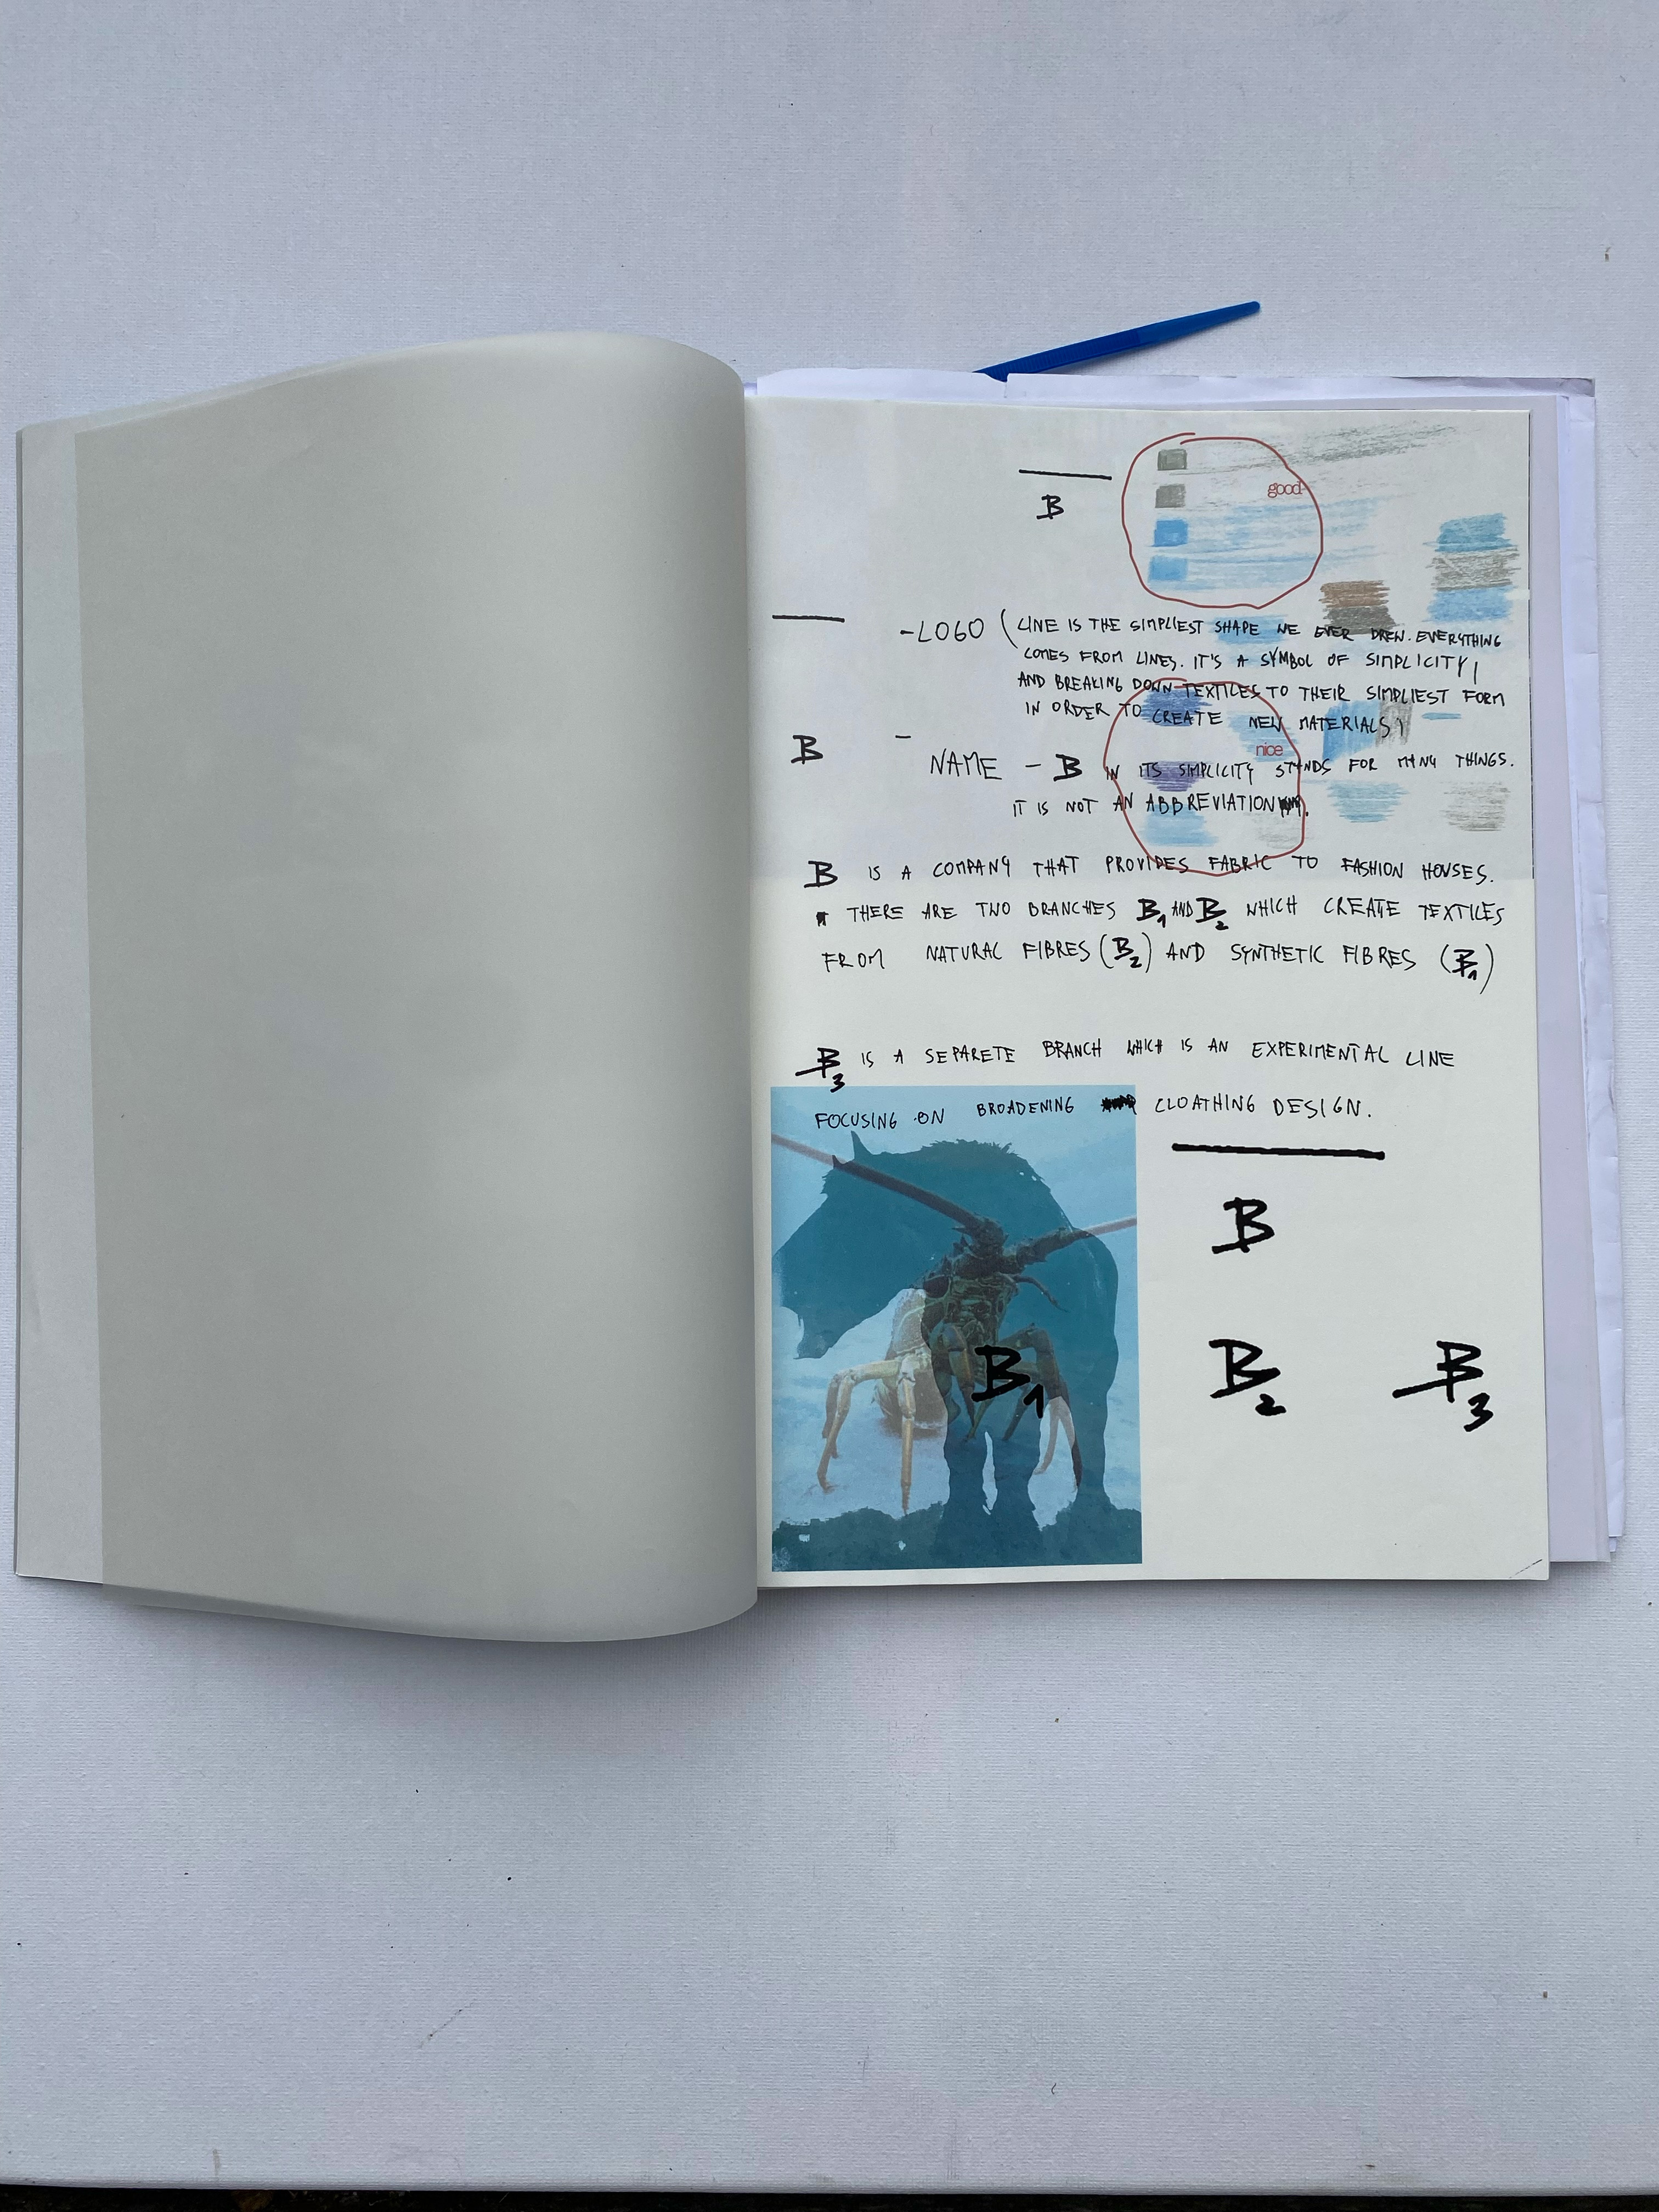 B
good
-LOGO (LINE IS THE SIMPLIEST SHAPE WE EVER DREW. EVERYTHING
COMES FROM LINES. IT'S A SYMBOL OF SIMPLICITY,
AND BREAKING DOWN TEXTILES TO THEIR SIMPLIEST FORM
IN ORDER TO CREATE NEW MATERIALS)
nice
B - NAME - B IN ITS SIMPLICITY STANDS FOR MANY THINGS.
IT IS NOT AN ABBREVIATION.
B IS A COMPANY THAT PROVIDES FABRIC TO FASHION HOUSES.
THERE ARE TWO BRANCHES B1 AND B2 WHICH CREATE TEXTILES
FROM NATURAL FIBRES (B2) AND SYNTHETIC FIBRES (B1)
B3 IS A SEPARETE BRANCH WHICH IS AN EXPERIMENTAL LINE
FOCUSING ON BROADENING CLOATHING DESIGN.
B
B1 B2 B3